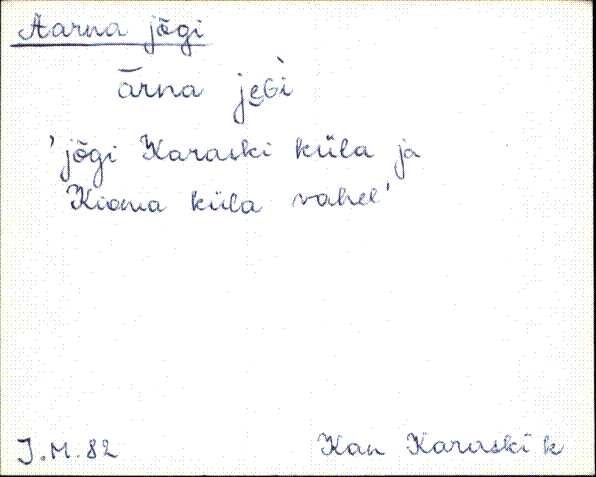 Aarna jõgi
ārna je̮Gì
'jõgi Karaski küla ja
Kioma küla vahel'
J.M.82 Kan Karaski k